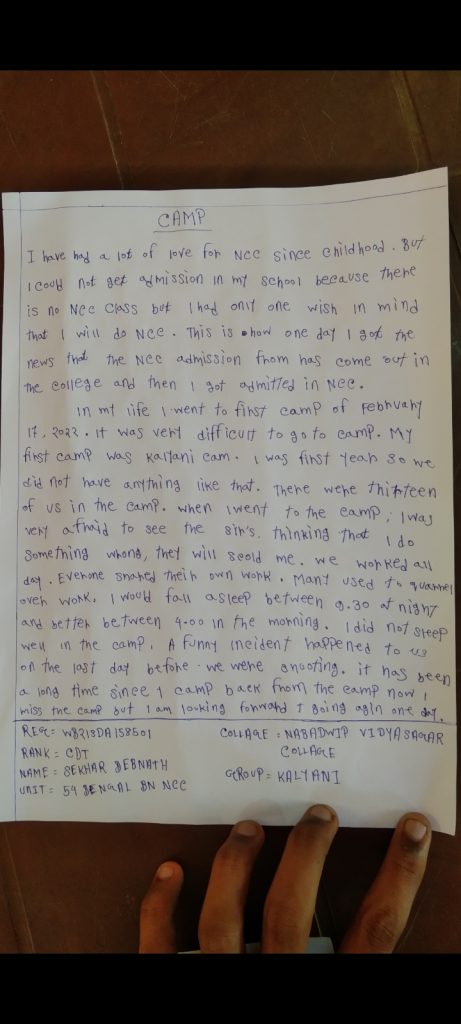 CAMP
I have had a lot of love for NCC since childhood. But
I could not get admission in my school because there
is no NCC class but I had only one wish in mind
that I will do NCC. This is how one day I got the
news that the NCC admission from has come out in
the college and then I got admitted in NCC.
In my life I went to first camp of February
17, 2022. It was very difficult to go to camp. My
first camp was Kalyani cam. I was first year so we
did not have anything like that. There were thirteen
of us in the camp. when I went to the camp, I was
very afraid to see the sir's. thinking that I do
something wrong, they will scold me. we worked all
day. Everone shared their own work. Many used to quarrel
over work. I would fall asleep between 9.30 at night
and better between 4.00 in the morning. I did not sleep
well in the camp. A funny incident happened to us
on the last day before we were shooting. it has been
a long time since I camp back from the camp now I
miss the camp but I am looking forward t going agin one day.
REG: WB21SDA158501
RANK: CDT
NAME: SEKHAR DEBNATH
UNIT: 54 BENGAL BN NCC
COLLAGE: NABADWIP VIDYASAGAR
COLLAGE
GROUP = KALYANI